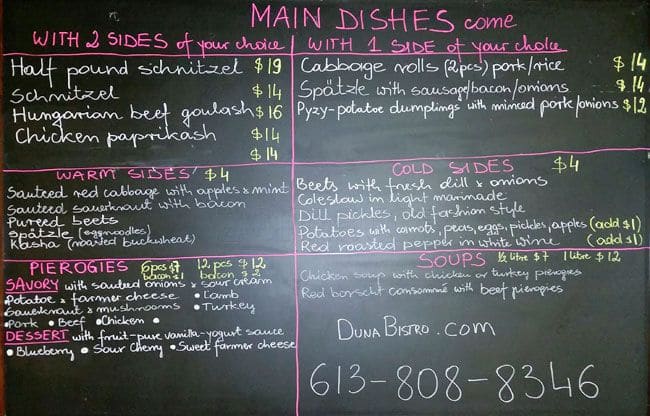 MAIN DISHES come
WITH 2 SIDES of your choice
Half pound schnitzel $19
Schnitzel $14
Hungarian beef goulash $16
Chicken paprikash $14
$14
WITH 1 SIDE of your choice
Cabbage rolls (2pcs) pork/rice $14
Spätzle with sausage/bacon/onions $14
Pyzy-potatoe dumplings with minced pork/onions $12
WARM SIDES $4
Sauteed red cabbage with apples & mint
Sauteed sauerkraut with bacon
Pureed beets
Spätzle (eggnoodles)
Kasha (roasted buckwheat)
COLD SIDES $4
Beets with fresh dill & onions
Coleslaw in light marinade
Dill pickles, old fashion style
Potatoes with carrots, peas, eggs, pickles, apples (add $1)
Red roasted pepper in white wine (add $1)
PIEROGIES 6pcs $7 12 pcs $12
bacon $1 bacon $2
SAVORY with sauted onions & sour cream
Potatoe & farmer cheese • Lamb
Sauerkraut & mushrooms • Turkey
• Pork • Beef • Chicken •
DESSERT with fruit-pure vanilla-yogurt sauce
• Blueberry • Sour Cherry • Sweet farmer cheese
SOUPS ½ litre $7 1 litre $12
Chicken soup with chicken or turkey pierogies
Red borscht consommé with beef pierogies
DUNABISTRO.COM
613-808-8346